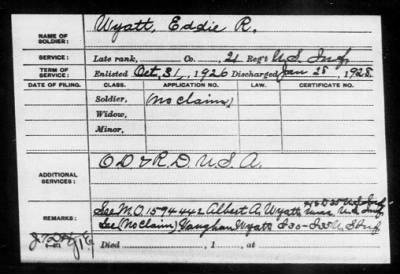 NAME OF SOLDIER: Wyatt, Eddie R.
SERVICE: Late rank, Co. 21 Reg't U.S. Inf
TERM OF SERVICE: Enlisted Oct. 31, 1926 Discharged Jan 28, 1928
DATE OF FILING. CLASS. APPLICATION NO. LAW. CERTIFICATE NO.
Soldier, (No Claim)
Widow,
Minor,
ADDITIONAL SERVICES: O.D. & R.D. U.S.A.
REMARKS: See M.O. 1594442 Albert A. Wyatt
See (No Claim) Vaughan Wyatt
Died , 1 , at